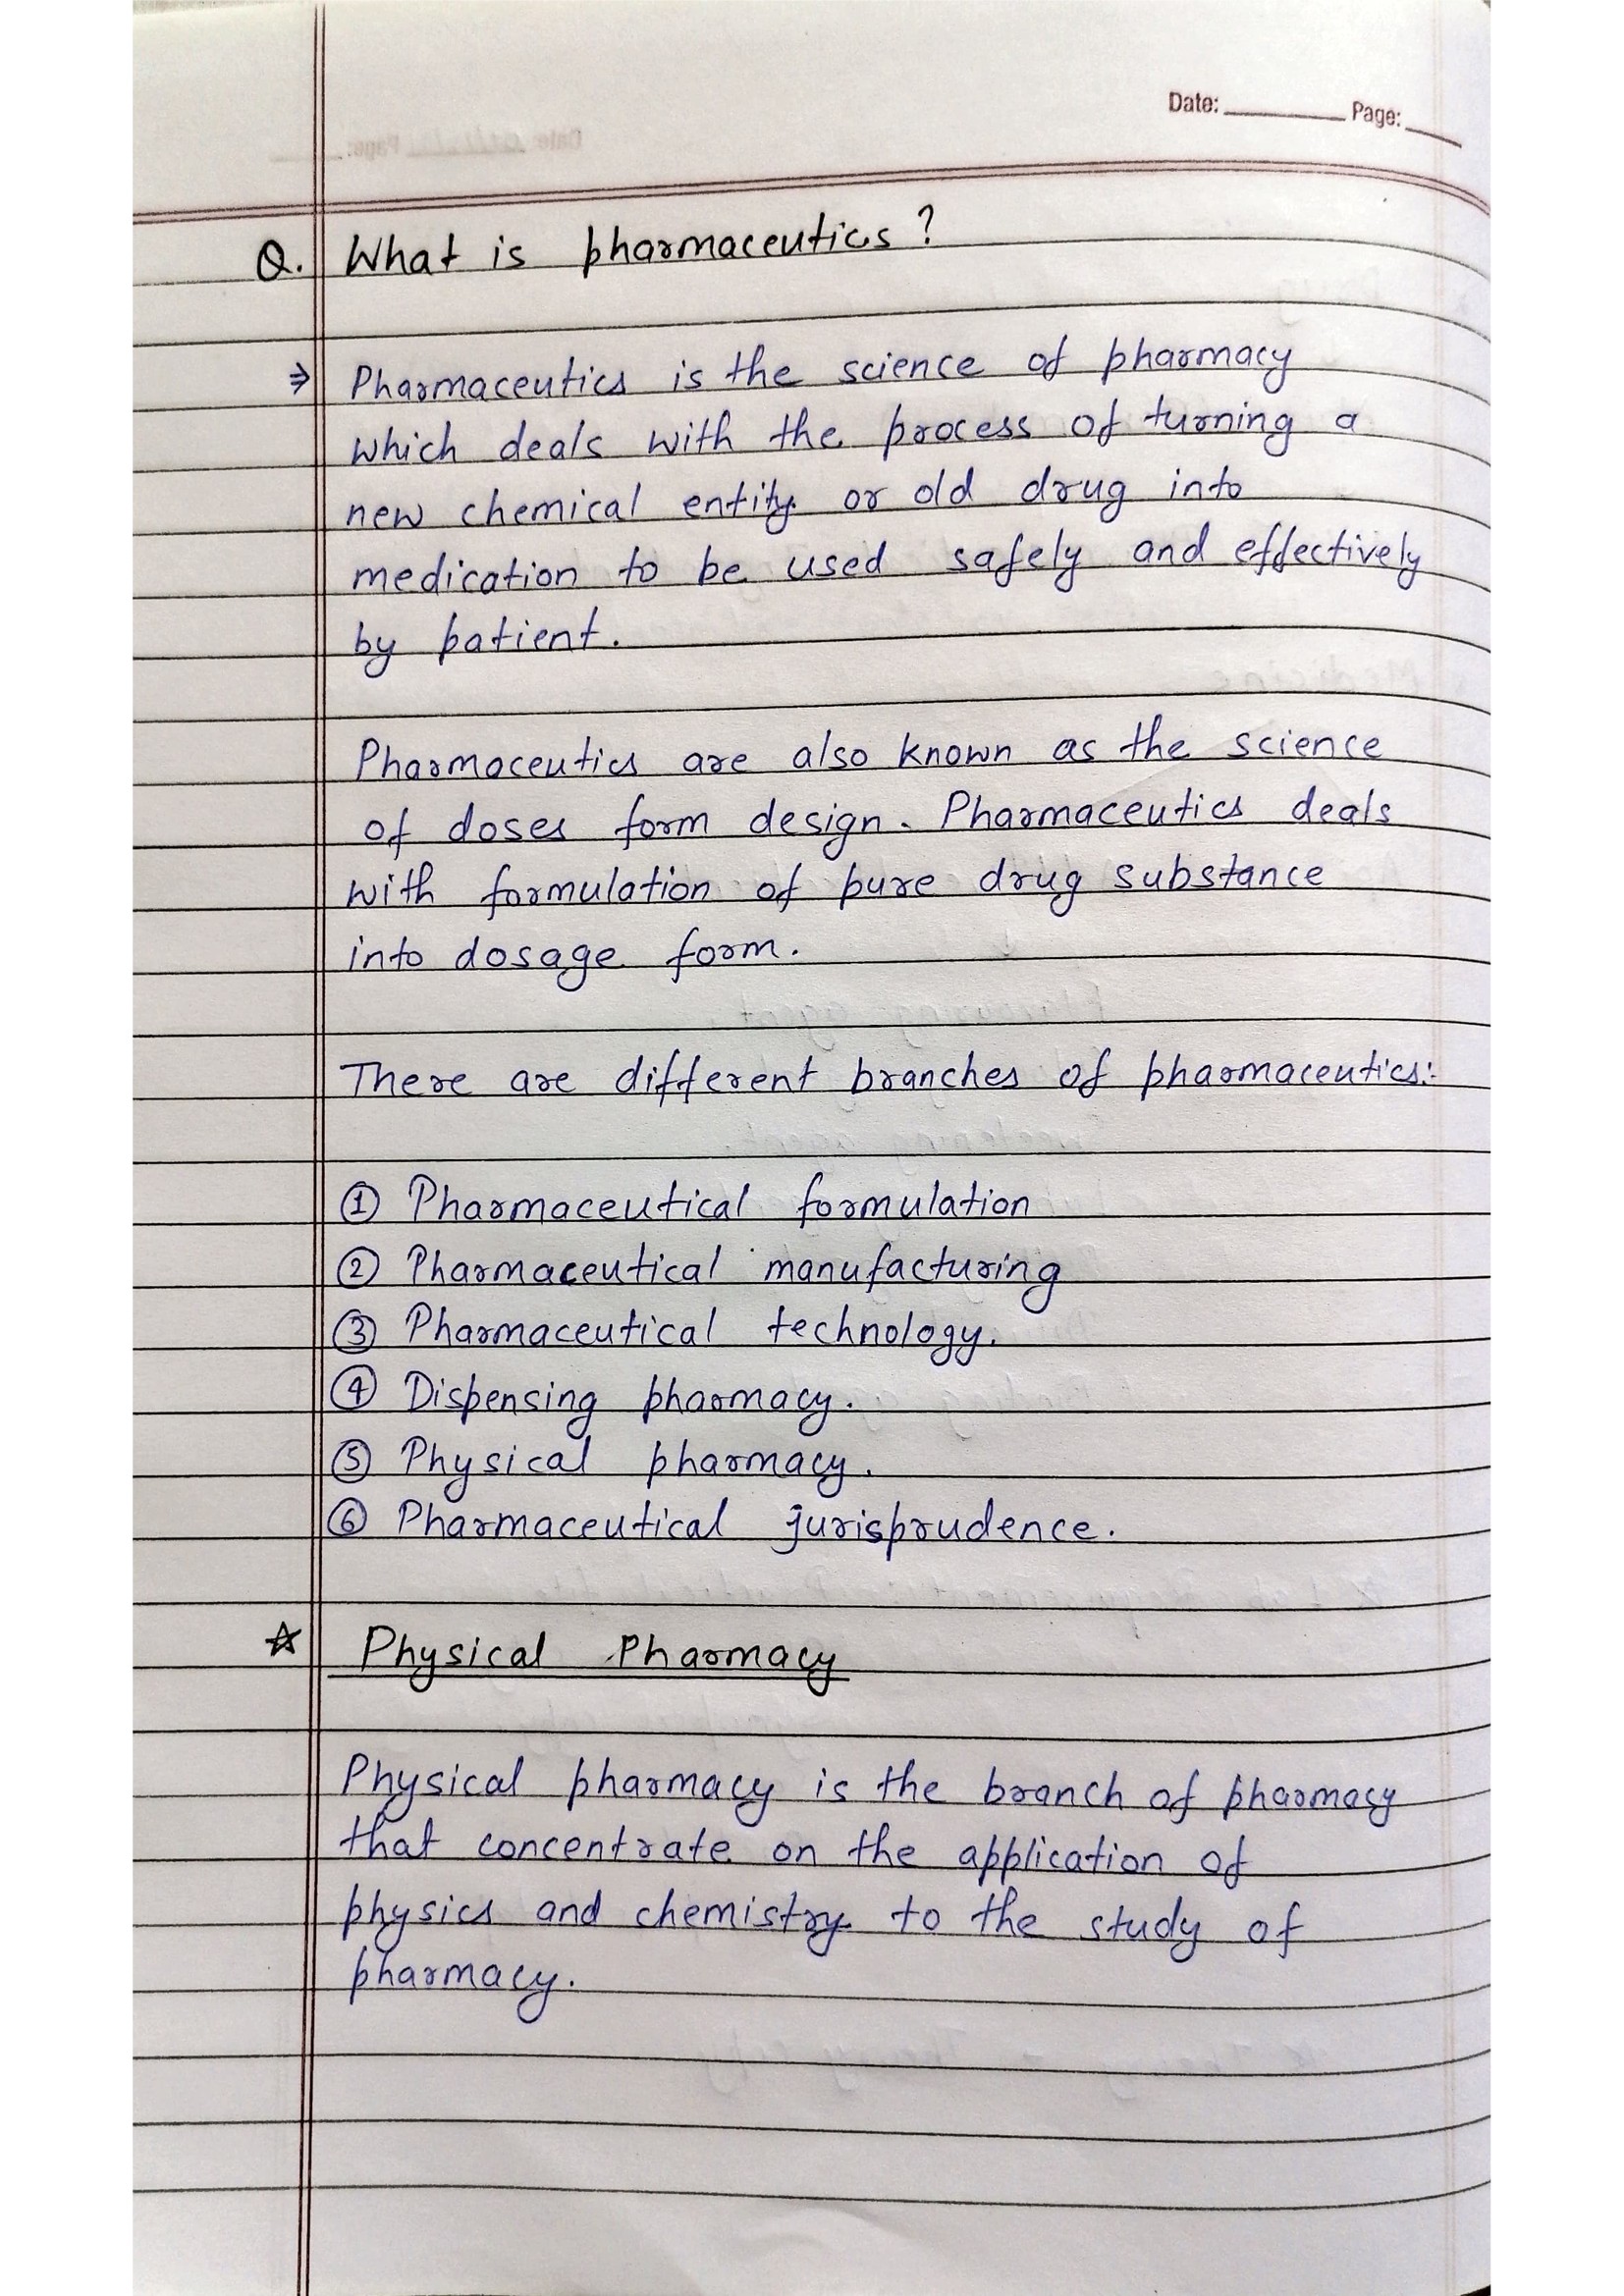 Date: Page:
Q. What is pharmaceutics ?
⇒ Pharmaceutics is the science of pharmacy
which deals with the process of turning a
new chemical entity or old drug into
medication to be used safely and effectively
by patient.
Pharmaceutics are also known as the science
of doses form design. Pharmaceutics deals
with formulation of pure drug substance
into dosage form.
There are different branches of pharmaceutics:-
① Pharmaceutical formulation
② Pharmaceutical manufacturing
③ Pharmaceutical technology.
④ Dispensing pharmacy.
⑤ Physical pharmacy.
⑥ Pharmaceutical jurisprudence.
☆ Physical Pharmacy
Physical pharmacy is the branch of pharmacy
that concentrate on the application of
physics and chemistry to the study of
pharmacy.